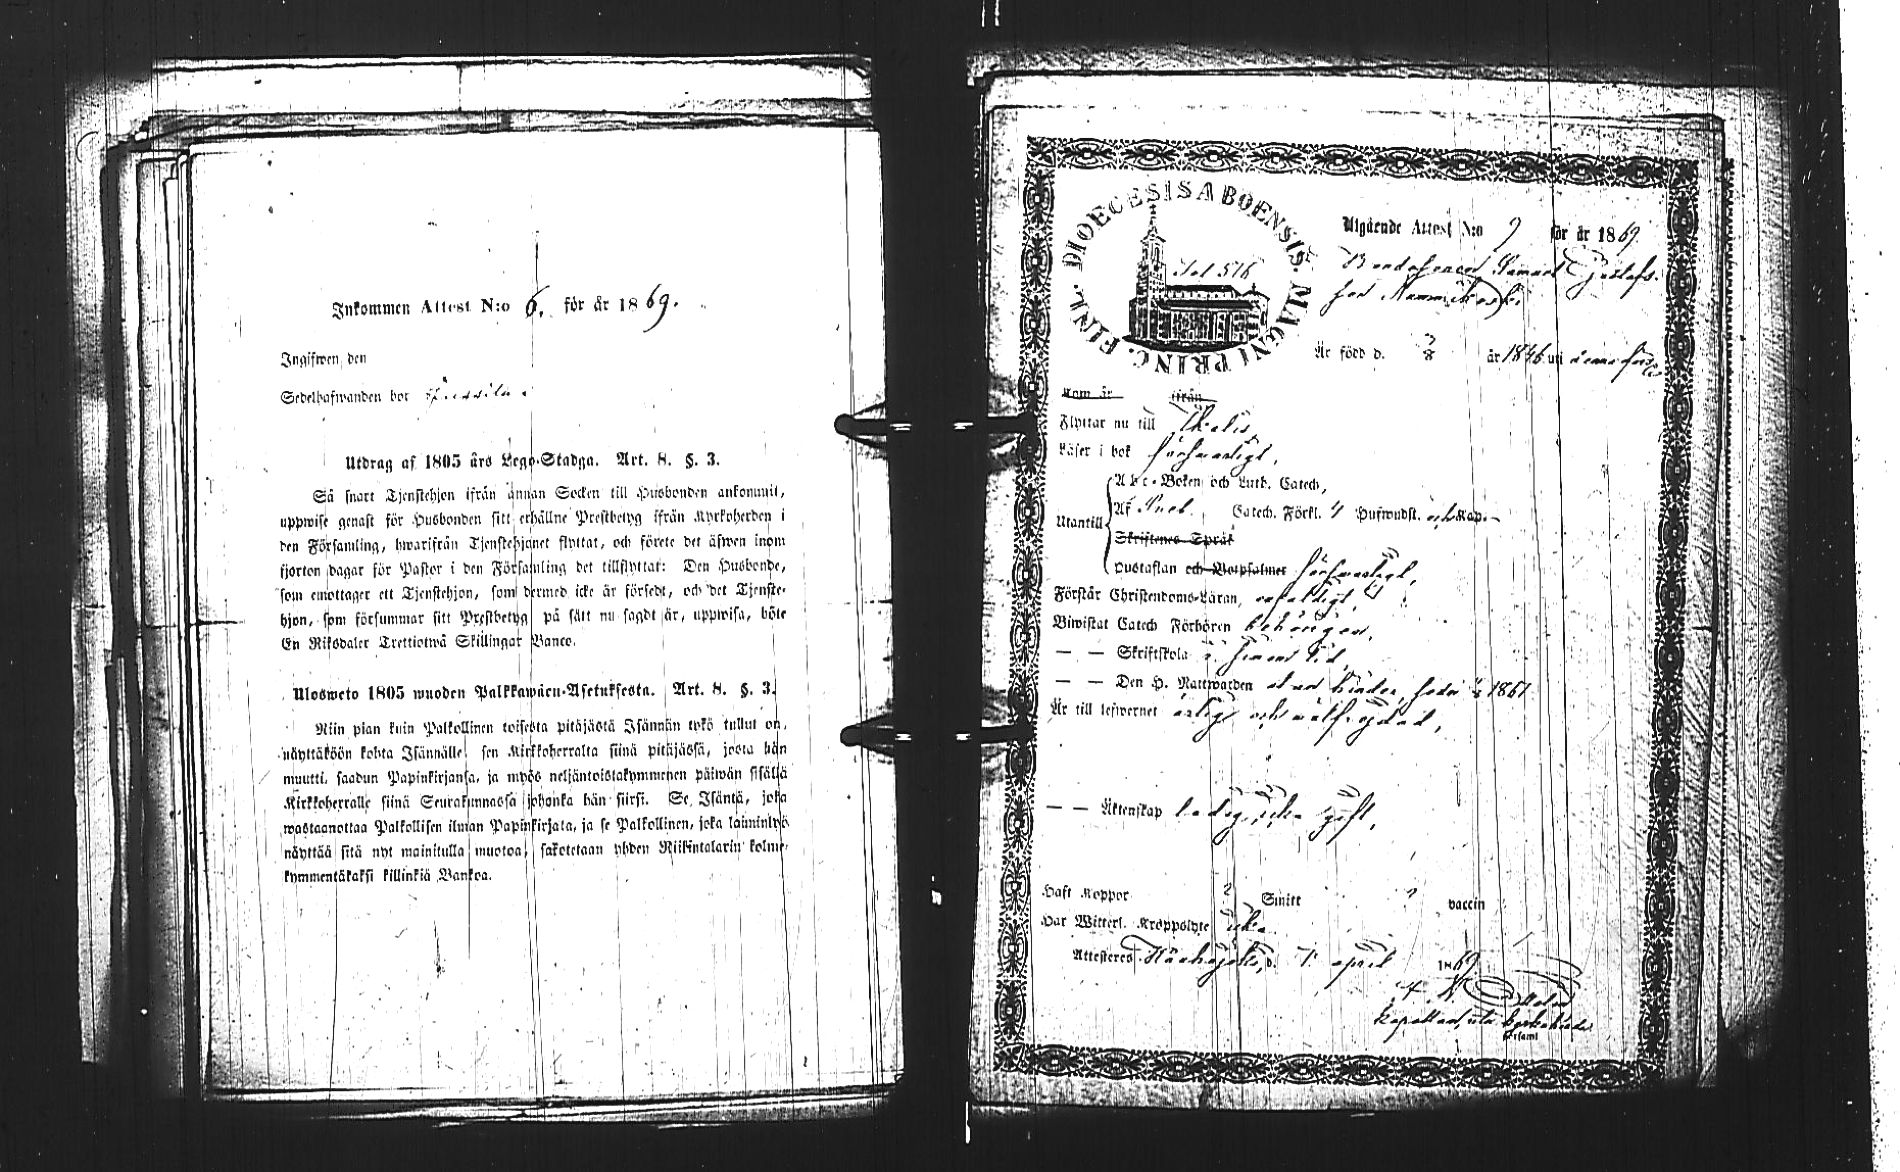 Inkommen Attest N:o 6. för år 1869.
Ingifwen den
Sedelhafwanden bor
Utdrag af 1805 års Lego-Stadga. Art. 8. §. 3.
Så snart Tjenstehjon ifrån annan Socken till Husbonden ankommit,
uppwise genast för Husbonden sitt erhållne Prestbetyg ifrån Kyrkoherden i
den Församling, hwarifrån Tjenstehjonet flyttat, och förete det äfwen inom
fjorton dagar för Pastor i den Församling det tillflyttat: Den Husbonde,
som emottager ett Tjenstehjon, som dermed icke är försedt, och det Tjenste-
hjon, som försummar sitt Prestbetyg på sätt nu sagdt är, uppwisa, böte
En Riksdaler Trettiotwå Skillingar Banco.
Ulosweto 1805 wuoden Palkkawäen-Asetuksesta. Art. 8. §. 3.
Niin pian kuin Palkollinen toisesta pitäjästä Isännän tykö tullut on,
näyttäköön kohta Isännälle sen Kirkkoherralta siinä pitäjässä, josta hän
muutti, saadun Papinkirjansa, ja myös neljäntoistakymmenen päiwän sisällä
Kirkkoherralle siinä Seurakunnassa johonka hän siirsi. Se Isäntä, joka
wastaanottaa Palkollisen ilman Papinkirjata, ja se Palkollinen, joka laiminlyö
näyttää sitä nyt mainitulla muotoa, sakotetaan yhden Riikintalarin kolme-
kymmentäkaksi killinkiä Bankoa.
DIOECESIS ABOENSIS. MAGNI PRINC. FINL.
Fol 516
Utgående Attest N:o 9 för år 1869.
Bondesonen Samuel Gustafs-
son
Är född d. 3/8 år 1846 uti denna förs.
Kom år ifrån
Flyttar nu till Ikalis,
Läser i bok förswarligt,
Abc-Boken och Luth. Catech,
Utantill Af Sveb. Catech. Förkl. 4 Hufwudst. och Kap.
Skriftenes Språk
Hustaflan och Botpsalmer förswarligt,
Förstår Christendoms-Läran,
Biwistat Catech Förhören behörigen,
— — Skriftskola i sinom tid,
— — Den H. Nattwarden utan hinder, sedan 1861
Är till lefwernet ärlig och wälfrejdad,
— — Äktenskap ledig till gifte,
Haft Koppor ? Smitt ? vaccin
Har Witterl. Kroppslyte icke.
Attesteras d. 1 april 1869
Kapellan, uti
Församl